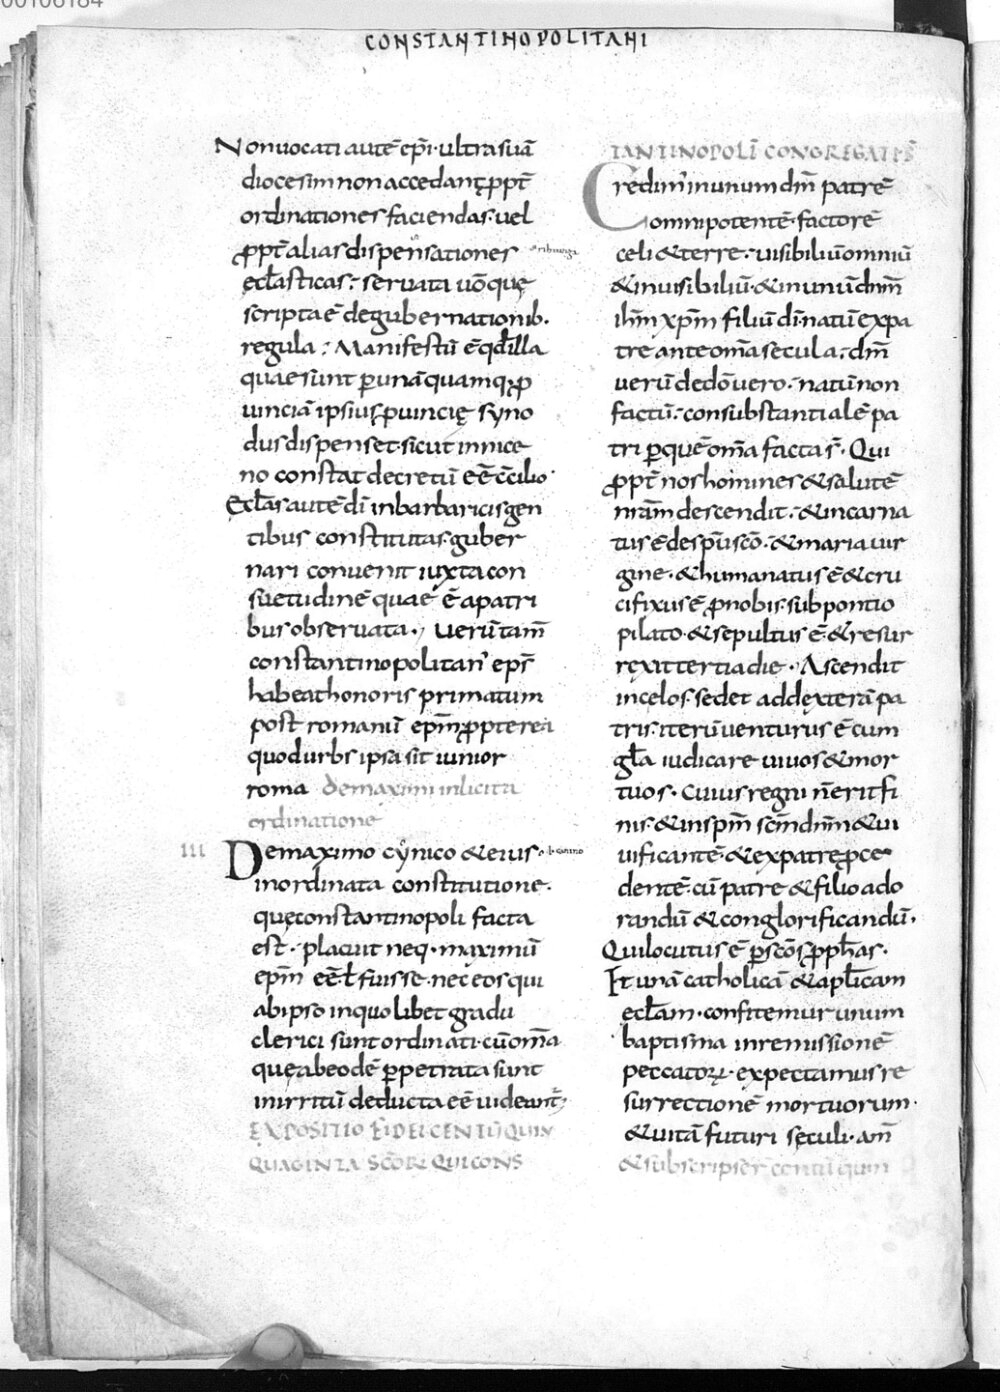 00106184
CONSTANTINOPOLITANI
Non uocati autē ep̄i· ultra suā
diocesim non accedant ꝓpt̄
ordinationes faciendas· uel
ꝓpt̄ alias dispensationes
eclasticas· seruata uō que
scripta ē de gubernationib·
regula· Manifestū ē qđ illa
quae sunt ꝑ unāquamq; ꝓ
uinciā ipsius ꝓuincię syno
dus dispenset· sicut in nice
no constat decretū eē c̄cilio·
Ecl̄as autē dī in barbaricis gen
tibus constitutas· guber
nari conuenit iuxta con
suetudinē quae ē a patri
bus obseruata· Uerū tam̄
constantinopolitan' ep̄s
habeat honoris primatum
post romanū ep̄m ꝓpterea
quod urbs ipsa sit iunior
roma de maximi inlicita
ordinatione
III De maximo cynico & eius
inordinata constitutione·
quę constantinopoli facta
est· placuit neq· maximū
ep̄m eē ł fuisse· nec eos qui
ab ipso in quolibet gradu
clerici sunt ordinati· cū om̄a
quę ab eodē ꝑpetrata sunt
in irritū deducta eē uideant̄
EXPOSITIO FIDEI CENTŪ QUIN
QUAGINTA SCŌR QUI CONS
TANTINOPOLI CONGREGATI S̄
Credim' in unum dm̄ patrē
omnipotentē· factorē
celi & terre· uisibiliū omniū
& inuisibiliū· & in unū dnm̄
ihm̄ xp̄m filiū dī· natū ex pa
tre ante om̄a secula· dm̄
uerū de dō uero· natū non
factū· consubstantialē pa
tri ꝑ quē om̄a facta s̄· Qui
ꝓpt̄ nos homines & salutē
nrām descendit· & incarna
tus ē de sp̄u scō· & maria uir
gine· & humanatus ē & cru
cifixus ē ꝓ nobis· sub pontio
pilato· & sepultus ē· & resur
rexit tertia die· Ascendit
in celos· sedet ad dexterā pa
tris· iterū uenturus ē cum
gl̄a iudicare uiuos & mor
tuos· cuius regni n̄ erit fi
nis· & in sp̄m scm̄ dnm̄ & ui
uificantē· & ex patre ꝓce
dentē· cū patre & filio ado
randū & conglorificandū·
Qui locutus ē ꝑ scōs ꝓph̄as·
Et unā catholicā & apl̄icam
ecl̄am· confitemur unum
baptisma in remissionē
peccatorꝝ· expectamus re
surrectionē mortuorum·
& uitā futuri sęculi· am̄
& subscripser̄ centū quin